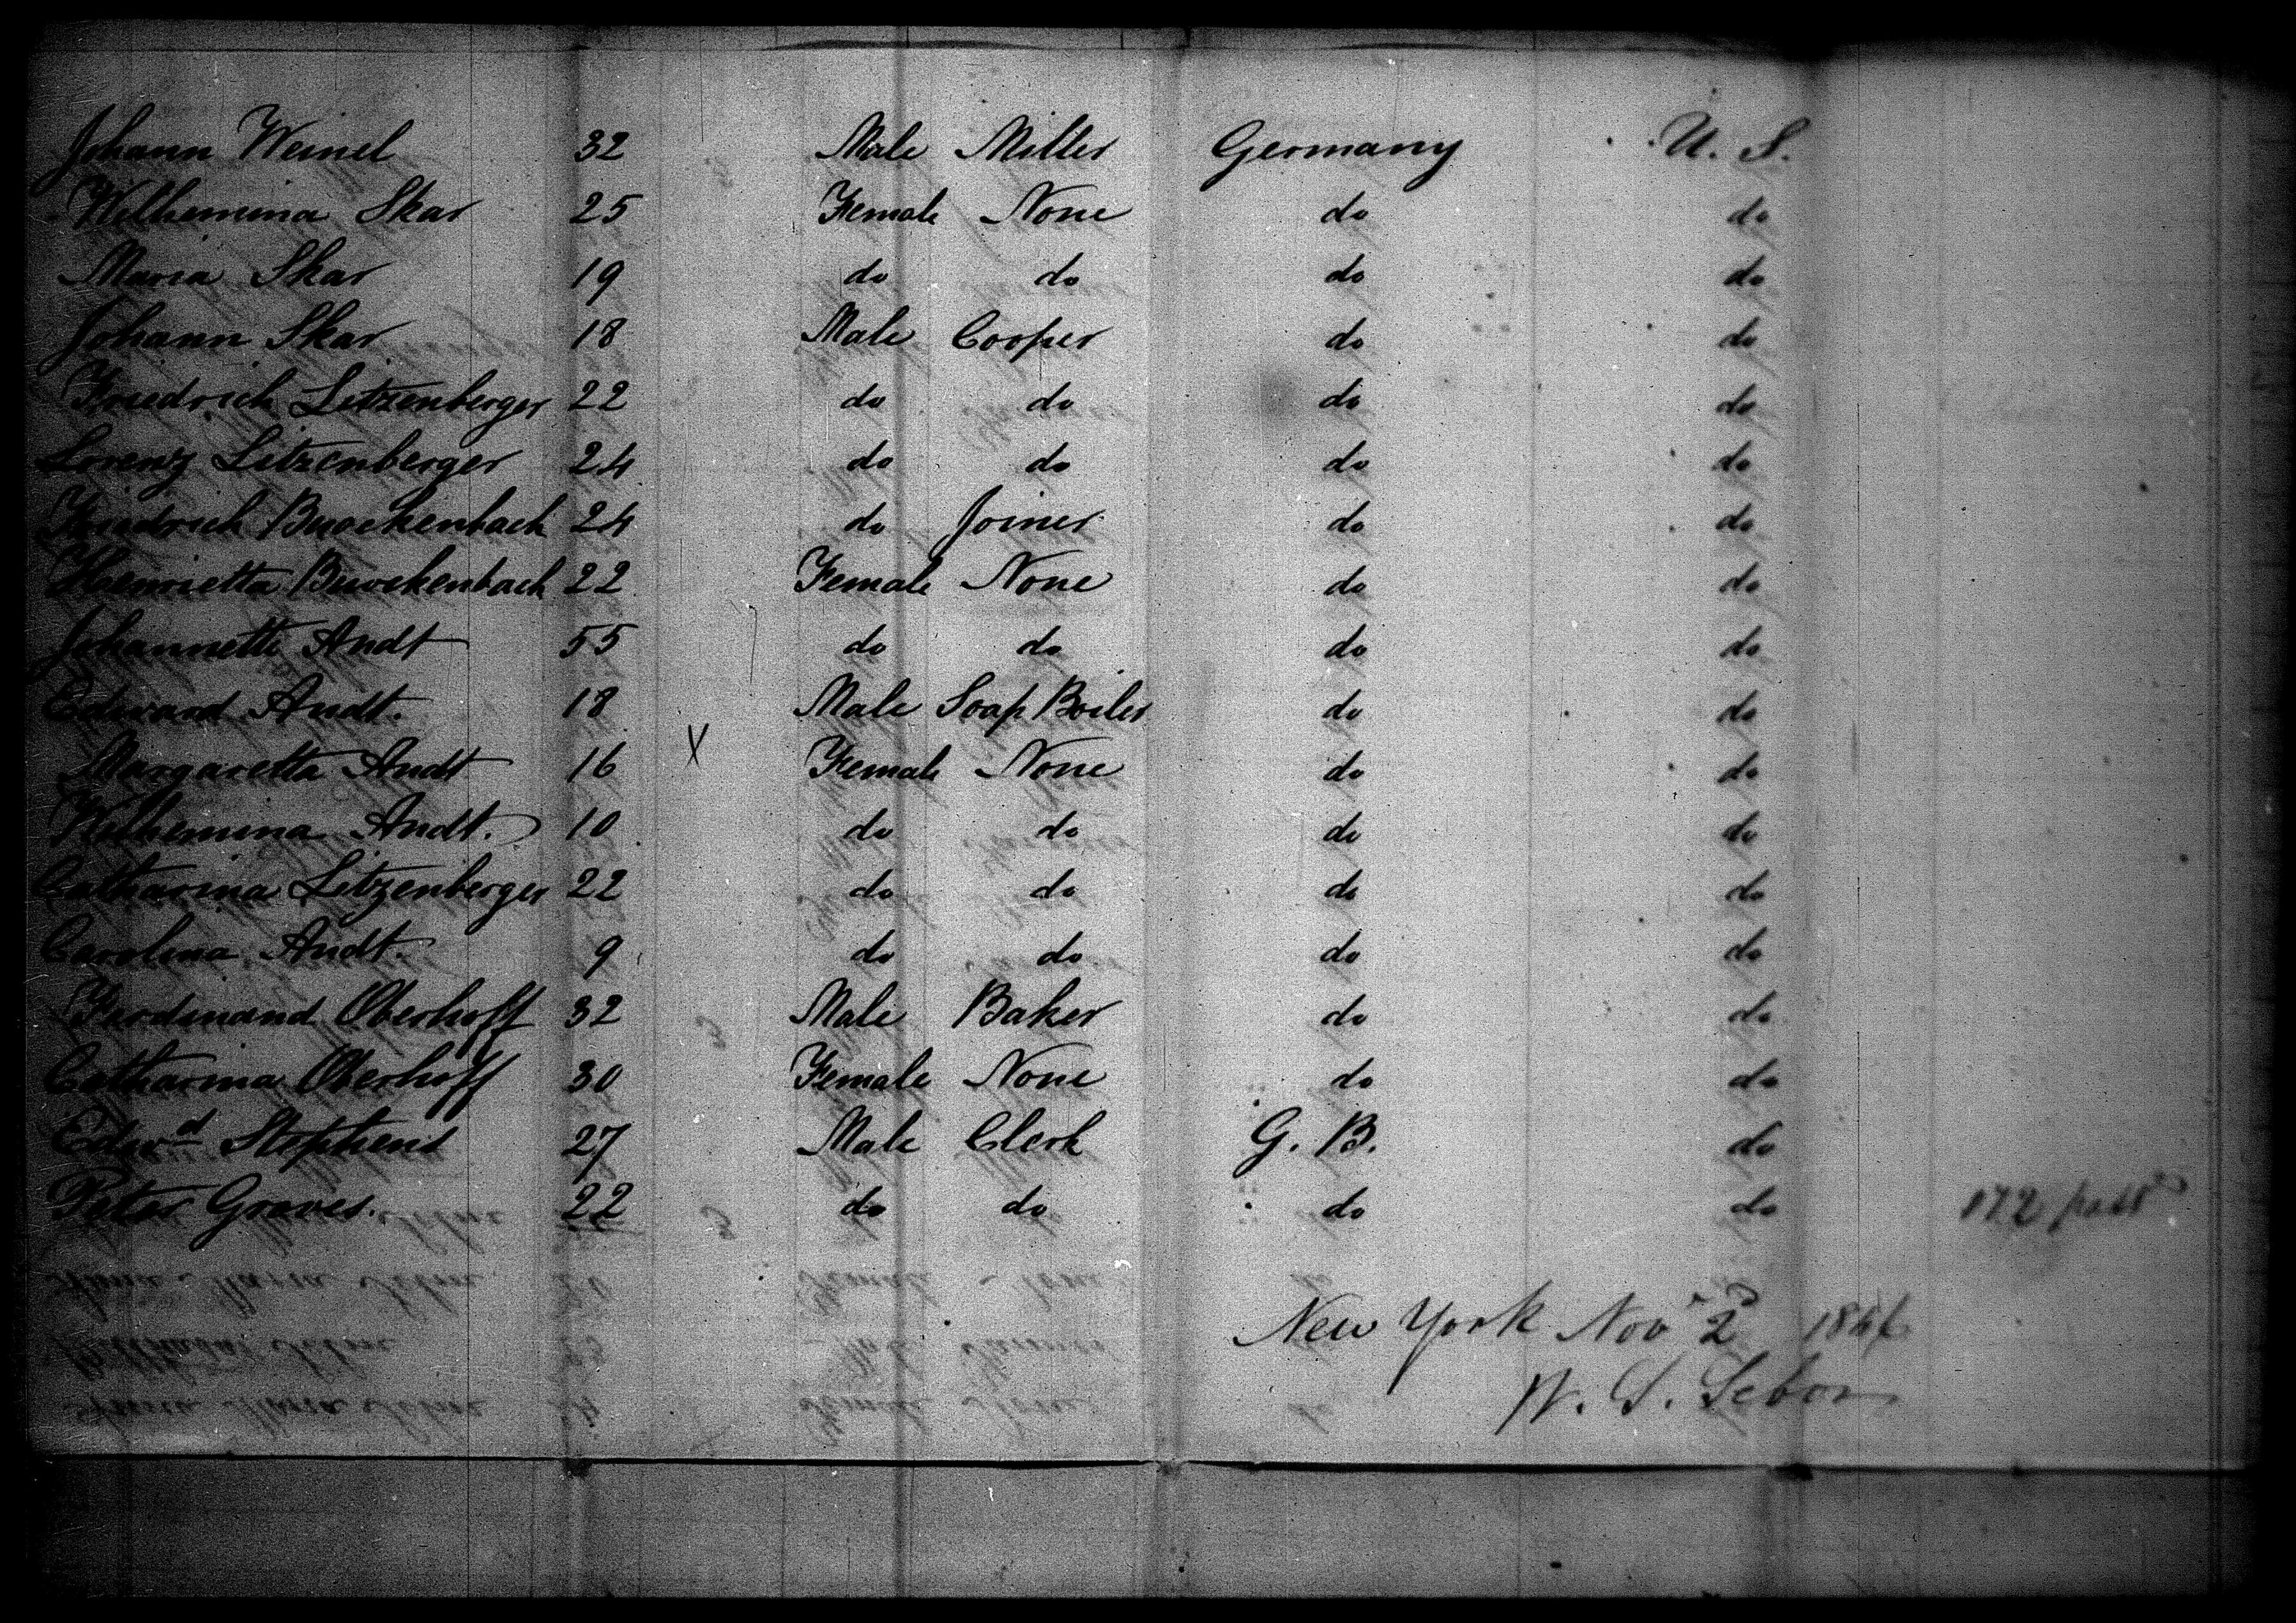 Johann Weinel 32 Male Miller Germany U. S.
Wilhemina Skar 25 Female None do do
Maria Skar 19 do do do do
Johann Skar 18 Male Cooper do do
Friedrich Litzenberger 22 do do do do
Lorenz Litzenberger 24 do do do do
Friedrich Buockenbach 24 do Joiner do do
Henrietta Buockenbach 22 Female None do do
Johannette Andt 55 do do do do
Edward Andt. 18 Male Soap Boiler do do
Margaretta Andt 16 X Female None do do
Wilhemina Andt. 10 do do do do
Catharina Litzenberger 22 do do do do
Carolina Andt. 9 do do do do
Ferdinand Oberhoff 32 Male Baker do do
Catharina Oberhoff 30 Female None do do
Edwd Stephens 27 Male Clerk G. B. do
Peter Graves. 22 do do do do 172 pass
New York Nov 2
W. S. Sebor